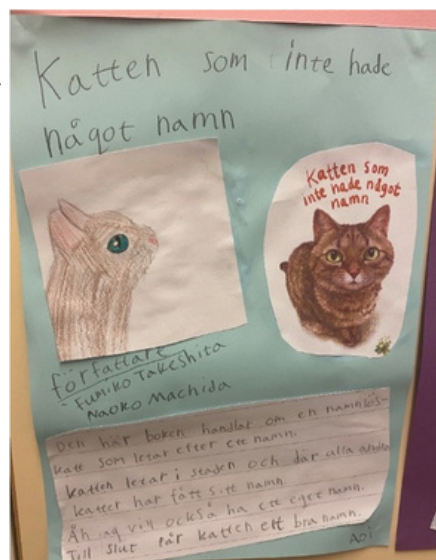 Katten som inte hade
något namn
Katten som
inte hade något
namn
författare
- Fumiko Takeshita
Naoko Machida
Den här boken handlar om en namnlös-
katt som letar efter ett namn.
Katten letar i staden och där alla andra
katter har fått sitt namn.
Åh jag vill också ha ett eget namn.
Till slut får katten ett bra namn.
Aoi